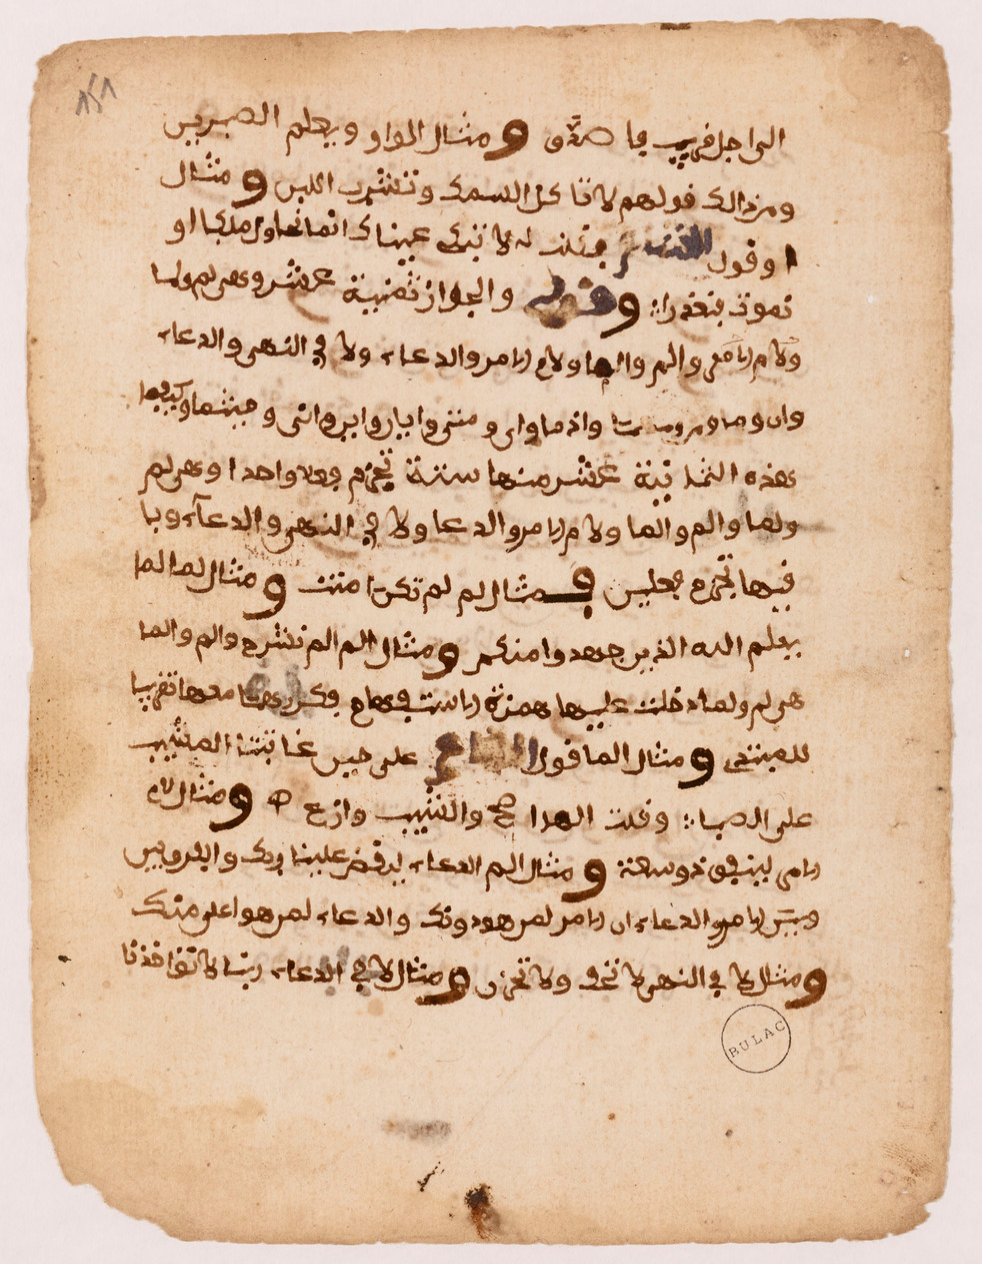 ١٨١
الى اجل قريب فاصدق ومثال الواو ويعلم الصبرين
ومن ذالك قولهم لا تاكل السمك وتشرب اللبن ومثال
او قول الشاعر فقلت له لا تبك عيناك انما نحاول ملكا او
نموت فنعذرا وقوله والجوازم ثمنية عشر وهي لم ولما
والم والما ولام الامر والدعاء ولا في النهي والدعاء
وان وما ومن ومهما واذما واي ومتى وايان واين وانى وحيثما وكيفما
هذه الثمانية عشر منها ستة تجزم فعلا واحدا وهي لم
ولما والم والما ولام الامر والدعا ولا في النهي والدعاء وبا
فيها تجزم فعلين فمثال لم لم تكن امنت ومثال لما لما
يعلم الله الذين جهدوا منكم ومثال الم الم نشرح والم والما
هي لم ولما دخلت عليها همزة الاستفهام معها تقريبا
للمبتدي ومثال الما قول الشاعر على حين عاتبت المشيب
على الصبا وقلت الما اصح والشيب وازع ومثال لام
الامر لينفق ذو سعة ومثال لام الدعاء ليقض علينا ربك والفرق بين
وبين الامر والدعاء ان الامر لمن هو دونك والدعاء لمن هو اعلى منك
ومثال لا في النهي لا تخف ولا تحزن ومثال لا في الدعاء ربنا لا تؤاخذنا
BULAC